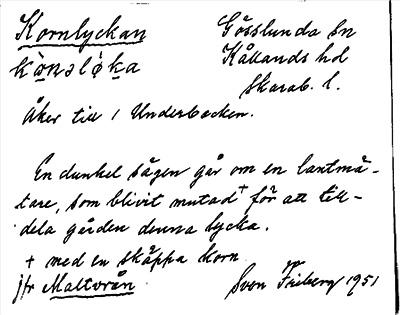 Kornlyckan
Gösslunda sn
Kållands hd
Skarab. l.
Åker till 1 Underbacken.
En dunkel sägen går om en lantmä-
tare, som blivit mutad+ för att till-
dela gården denna lycka.
+ med en skäppa korn
jfr Maltvrån
Sven Friberg 1951